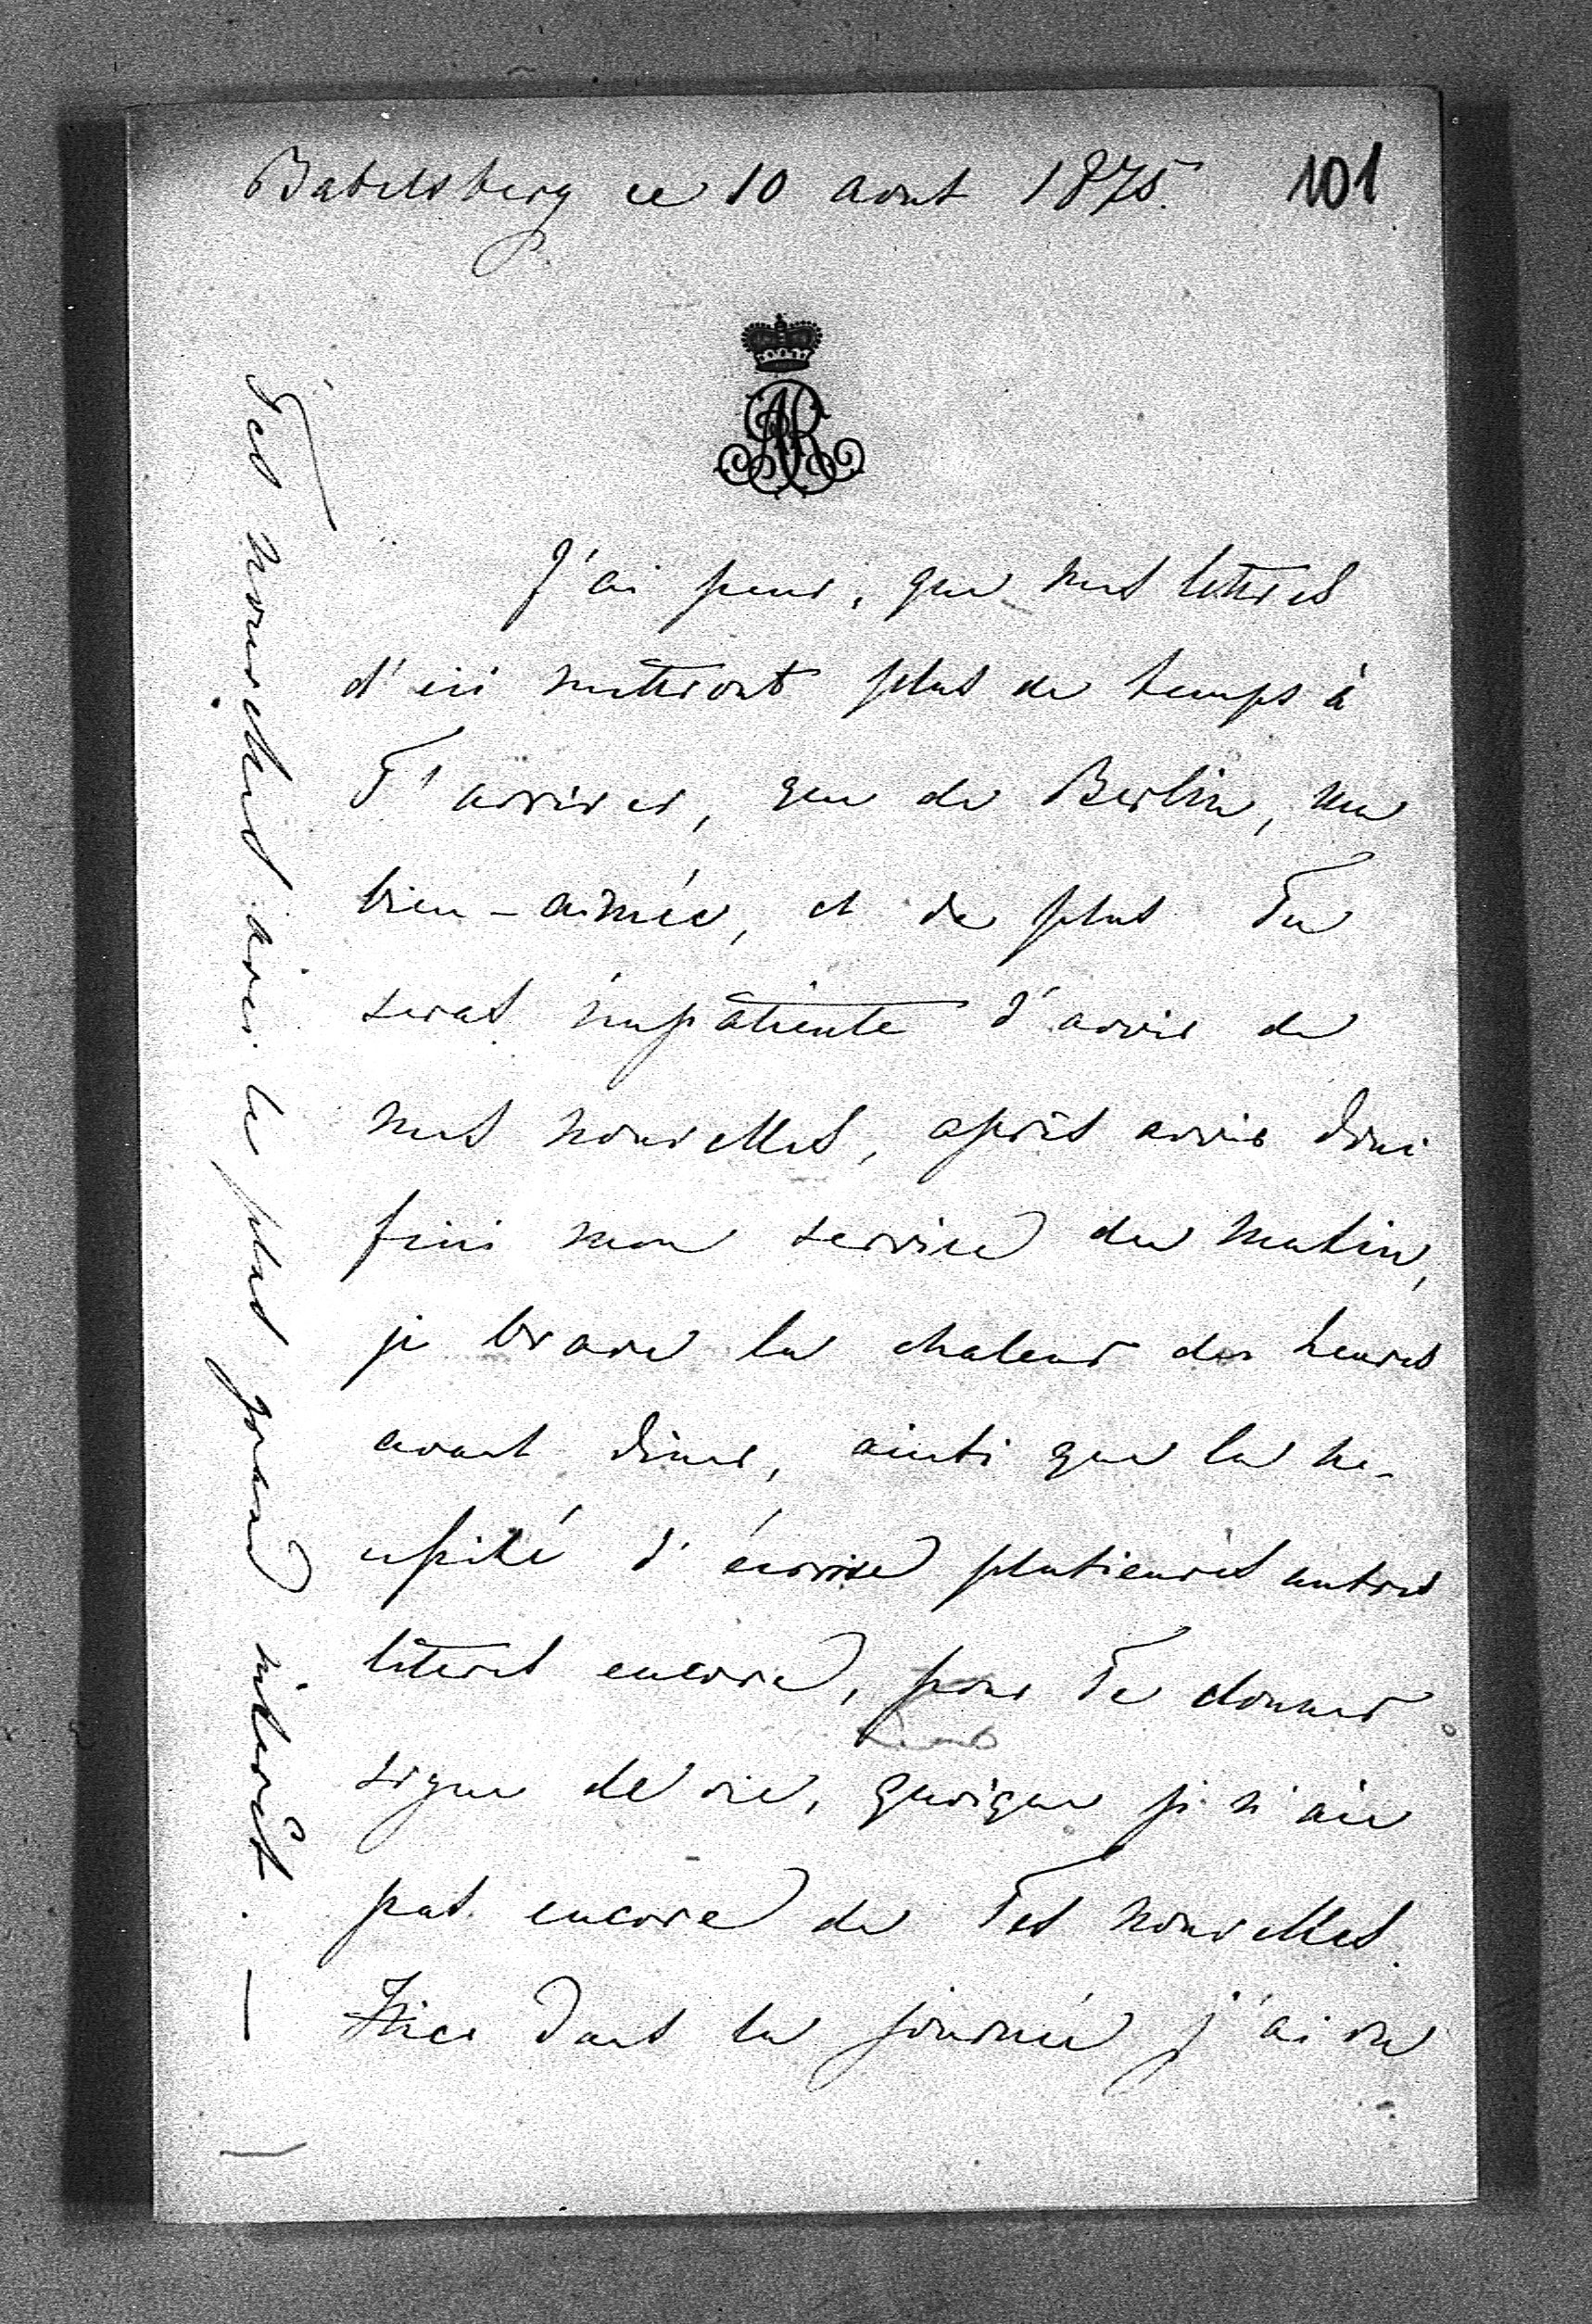 Babelsberg ce 10 aout 1875. 101
AR
J'ai peur, que mes lettres
d'ici mettront plus de temps à
T'arriver, que de Berlin, ma
bien-aimée, et de plus Tu
seras impatiente d'avoir de
mes nouvelles, après avoir donc
fini mon service du matin,
je brave la chaleur des heures
avant diner, ainsi que la né-
cessité d'écrire plusieures autres
lettres encore, pour Te donner
signe de vie, quoique je n'aie
pas encore de Tes nouvelles.
Hier dans la journée j'ai vu
Tes nouvelles avec le plus grand intérêt. —